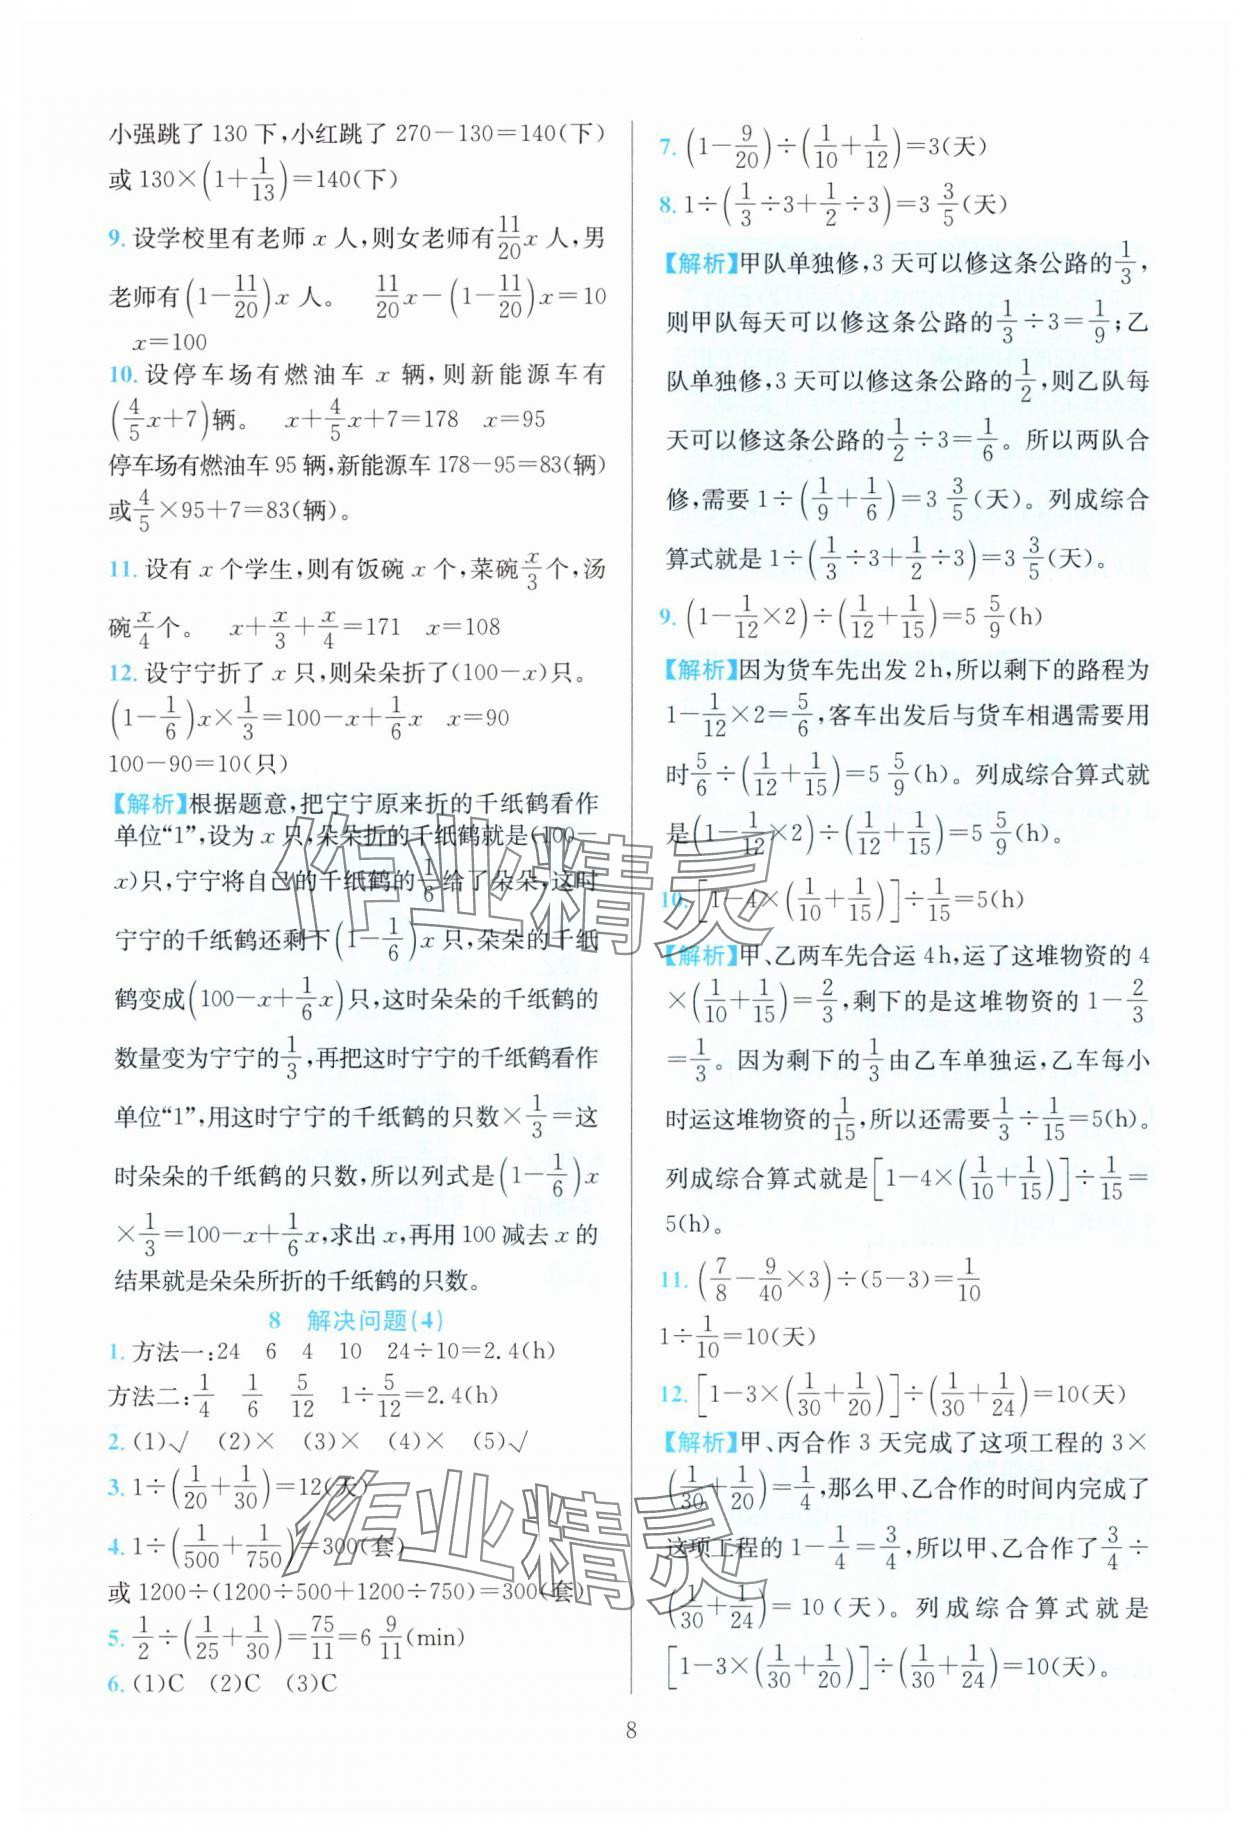 小强跳了 130 下,小红跳了 270−130=140(下)
或 130×(1+1/13)=140(下)
9. 设学校里有老师 x 人,则女老师有 11/20 x 人,男
老师有(1−11/20)x 人。 11/20 x−(1−11/20)x=10
x=100
10. 设停车场有燃油车 x 辆,则新能源车有
(4/5 x+7)辆。 x+4/5 x+7=178 x=95
停车场有燃油车 95 辆,新能源车 178−95=83(辆)
或 4/5×95+7=83(辆)。
11. 设有 x 个学生,则有饭碗 x 个,菜碗 x/3 个,汤
碗 x/4 个。 x+x/3+x/4=171 x=108
12. 设宁宁折了 x 只,则朵朵折了(100−x)只。
(1−1/6)x×1/3=100−x+1/6 x x=90
100−90=10(只)
【解析】根据题意,把宁宁原来折的千纸鹤看作
单位“1”,设为 x 只,朵朵折的千纸鹤就是(100−
x)只,宁宁将自己的千纸鹤的 1/6 给了朵朵,这时
宁宁的千纸鹤还剩下(1−1/6)x 只,朵朵的千纸
鹤变成(100−x+1/6 x)只,这时朵朵的千纸鹤的
数量变为宁宁的 1/3,再把这时宁宁的千纸鹤看作
单位“1”,用这时宁宁的千纸鹤的只数×1/3=这
时朵朵的千纸鹤的只数,所以列式是(1−1/6)x
×1/3=100−x+1/6 x,求出 x,再用 100 减去 x 的
结果就是朵朵所折的千纸鹤的只数。
8 解决问题(4)
1. 方法一:24 6 4 10 24÷10=2.4(h)
方法二:1/4 1/6 5/12 1÷5/12=2.4(h)
2. (1)√ (2)× (3)× (4)× (5)√
3. 1÷(1/20+1/30)=12(天)
4. 1÷(1/500+1/750)=300(套)
或 1200÷(1200÷500+1200÷750)=300(套)
5. 1/2÷(1/25+1/30)=75/11=6 9/11(min)
6. (1)C (2)C (3)C
7. (1−9/20)÷(1/10+1/12)=3(天)
8. 1÷(1/3÷3+1/2÷3)=3 3/5(天)
【解析】甲队单独修,3 天可以修这条公路的 1/3,
则甲队每天可以修这条公路的 1/3÷3=1/9;乙
队单独修,3 天可以修这条公路的 1/2,则乙队每
天可以修这条公路的 1/2÷3=1/6。所以两队合
修,需要 1÷(1/9+1/6)=3 3/5(天)。列成综合
算式就是 1÷(1/3÷3+1/2÷3)=3 3/5(天)。
9. (1−1/12×2)÷(1/12+1/15)=5 5/9(h)
【解析】因为货车先出发 2h,所以剩下的路程为
1−1/12×2=5/6,客车出发后与货车相遇需要用
时 5/6÷(1/12+1/15)=5 5/9(h)。列成综合算式就
是(1−1/12×2)÷(1/12+1/15)=5 5/9(h)。
10. [1−4×(1/10+1/15)]÷1/15=5(h)
【解析】甲、乙两车先合运 4h,运了这堆物资的 4
×(1/10+1/15)=2/3,剩下的是这堆物资的 1−2/3
=1/3。因为剩下的 1/3 由乙车单独运,乙车每小
时运这堆物资的 1/15,所以还需要 1/3÷1/15=5(h)。
列成综合算式就是[1−4×(1/10+1/15)]÷1/15=
5(h)。
11. (7/8−9/40×3)÷(5−3)=1/10
1÷1/10=10(天)
12. [1−3×(1/30+1/20)]÷(1/30+1/24)=10(天)
【解析】甲、丙合作 3 天完成了这项工程的 3×
(1/30+1/20)=1/4,那么甲、乙合作的时间内完成了
这项工程的 1−1/4=3/4,所以甲、乙合作了 3/4÷
(1/30+1/24)=10(天)。列成综合算式就是
[1−3×(1/30+1/20)]÷(1/30+1/24)=10(天)。
8
作业精灵
作业精灵